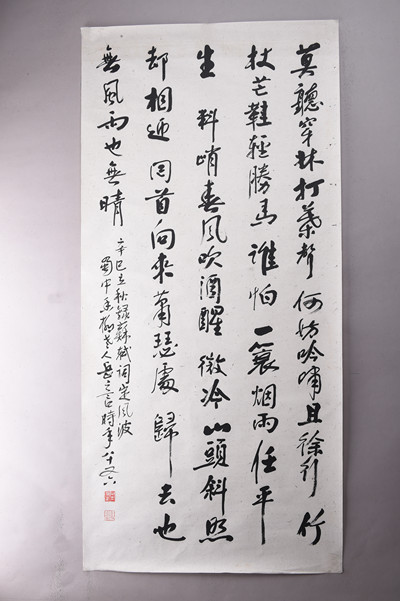 莫聽穿林打葉聲 何妨吟嘯且徐行 竹
杖芒鞋輕勝馬 誰怕 一蓑烟雨任平
生 料峭春風吹酒醒 微冷 山頭斜照
却相迎 回首向來蕭瑟處 歸去 也
無風雨也無晴
辛巳立秋錄蘇軾詞定風波
蜀中 老人 時年八十又六